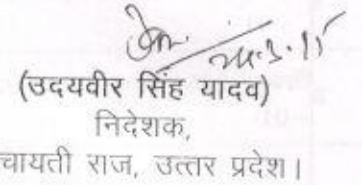 (उदयवीर सिंह यादव)
निदेशक,
चायती राज, उत्तर प्रदेश।